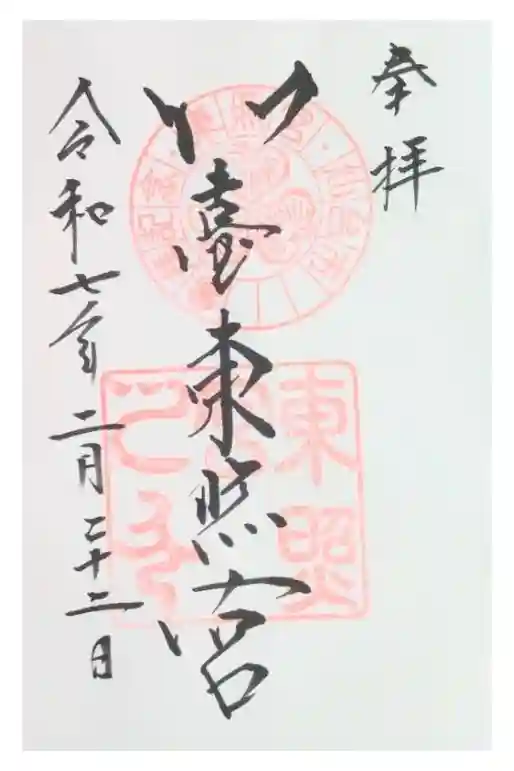 奉拝
仙臺東照宮
令和七年二月二十二日
東照